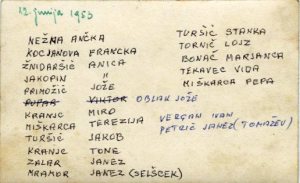 12. junija 1953
NEŽNA ANČKA
KOCJANOVA FRANCKA
ŽNIDARŠIČ ANICA
JAKOPIN "
PRIMOŽIČ JOŽE
PUPAR VIKTOR OBLAK JOŽE
KRANJC MIRO
MIŠKARCA TEREZIJA
TURŠIČ JAKOB
KRANJC TONE
ZALAR JANEZ
MRAMOR JANEZ (SELŠČEK)
TURŠIČ STANKA
TORNIČ LOJZ
BONAČ MARJANCA
TEKAVEC VIDA
MIŠKARCA PEPA
VERGAN IVAN
PETRIČ JANEZ (TOMAŽEV)